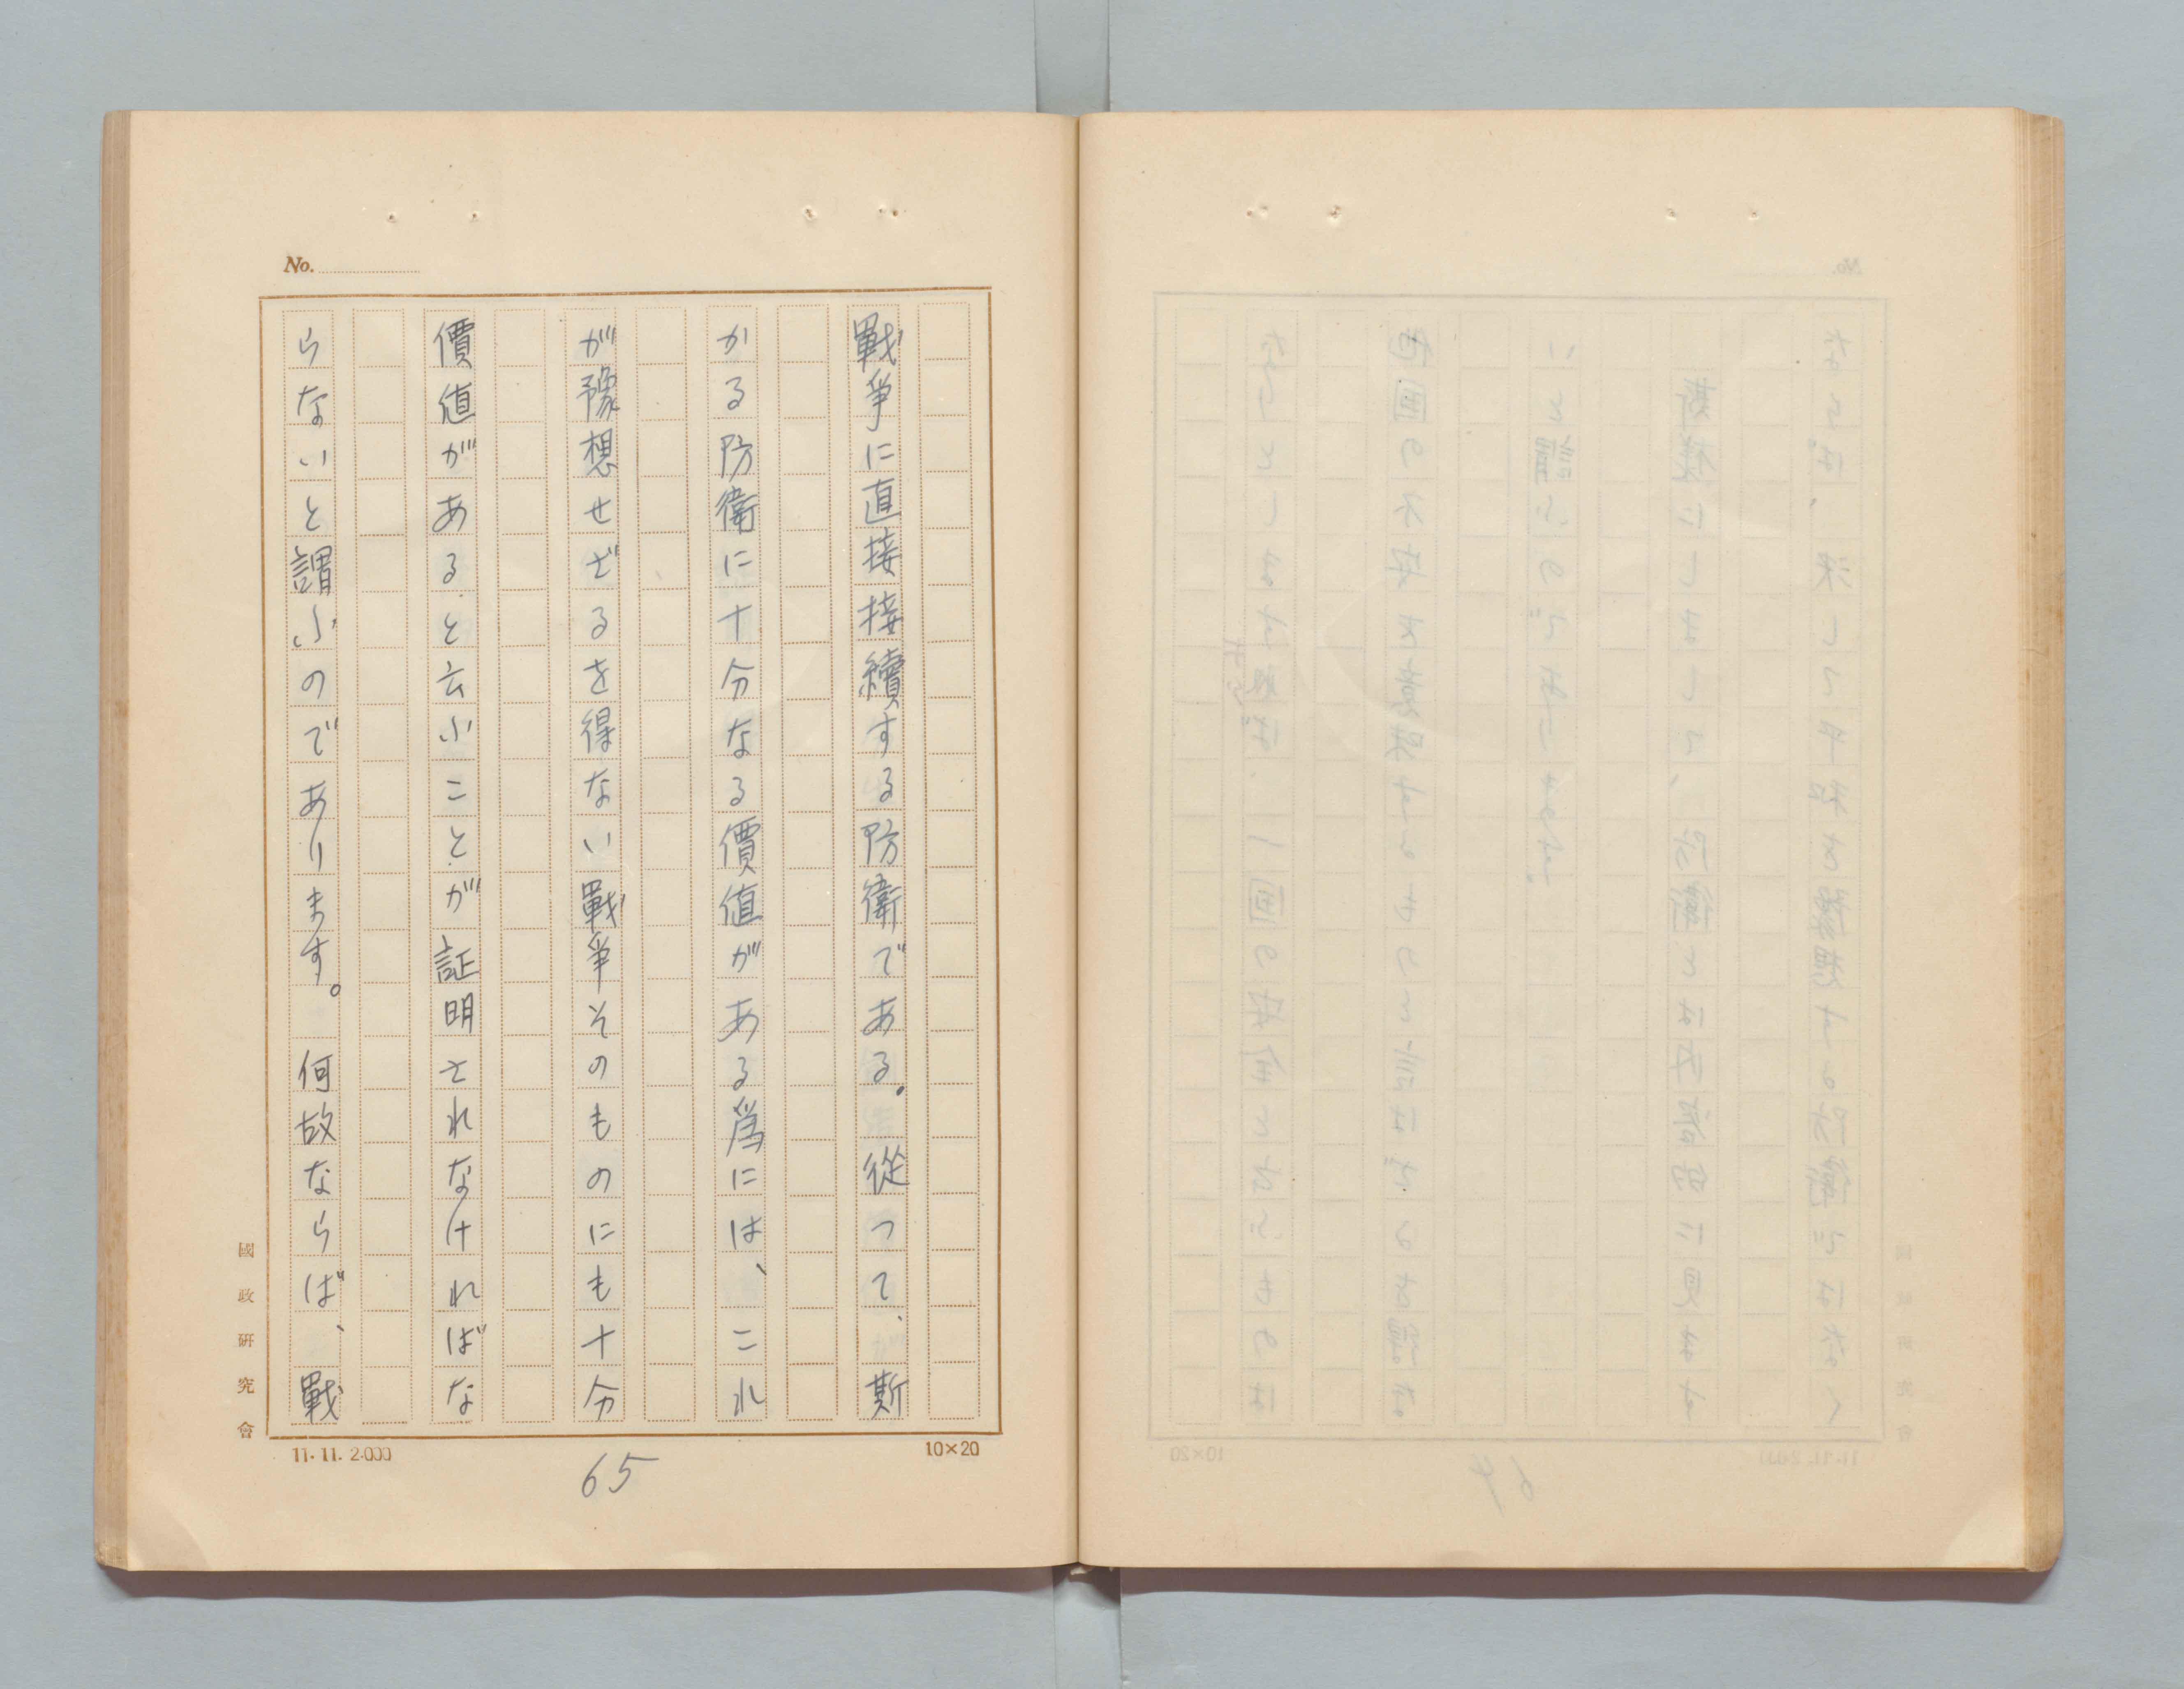 No.
戰爭に直接接續する防衛である。從つて、斯
かる防衛に十分なる價値がある爲には、これ
が豫想せざるを得ない戰爭そのものにも十分
價値がある.と云ふことが証明されなければな
らないと謂ふのであります。何故ならば、戰
國政研究會
11.11.2.000
65
10×20